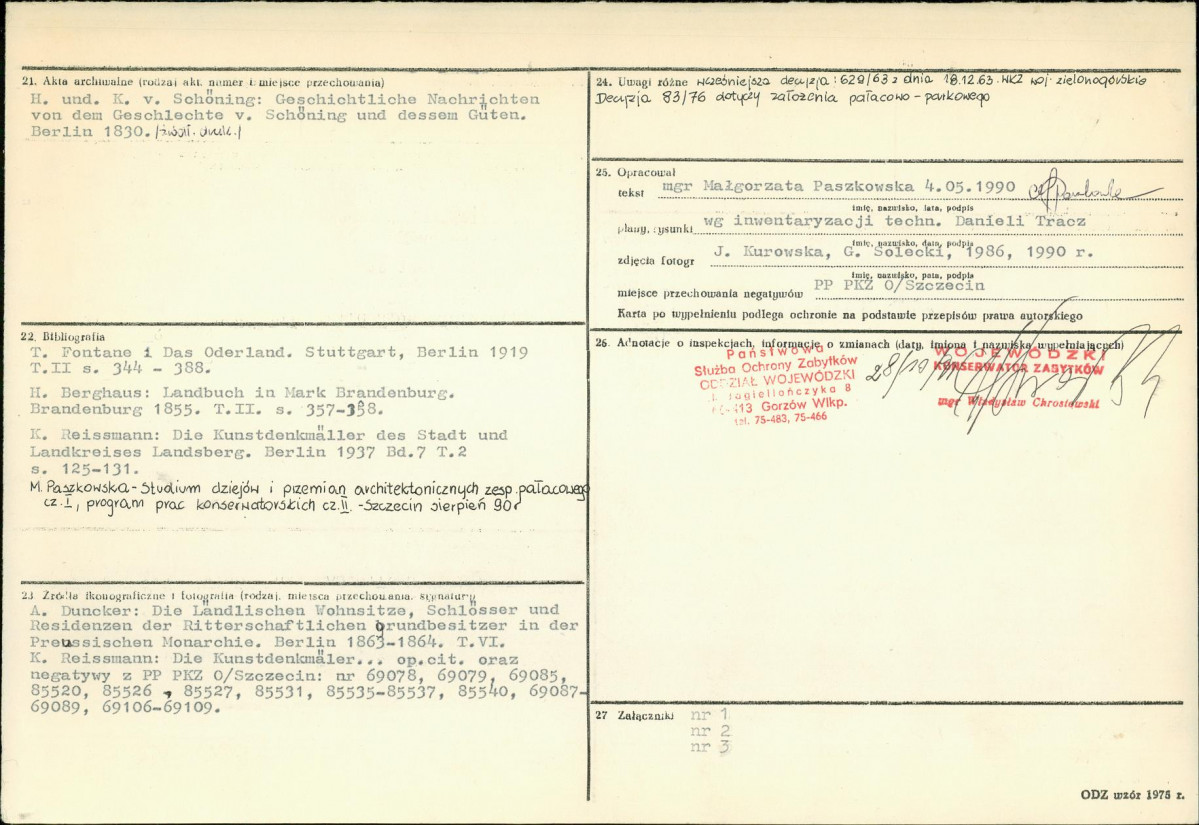 21. Akta archiwalne (rodzaj akt, numer i miejsce przechowania)
H. und. K. v. Schöning: Geschichtliche Nachrichten
von dem Geschlechte v. Schöning und dessem Güten.
Berlin 1830.
22. Bibliografia
T. Fontane i Das Oderland. Stuttgart, Berlin 1919
T.II s. 344 - 388.
H. Berghaus: Landbuch in Mark Brandenburg.
Brandenburg 1855. T.II. s. 357-358.
K. Reissmann: Die Kunstdenkmäller des Stadt und
Landkreises Landsberg. Berlin 1937 Bd.7 T.2
s. 125-131.
M. Paszkowska - Studium dziejów i przemian architektonicznych zesp. pałacowego
cz. I, program prac konserwatorskich cz. II. - Szczecin sierpień 90r
23 Źródła ikonograficzne i fotografia (rodzaj, miejsca przechowania, sygnatury)
A. Duncker: Die Ländlischen Wohnsitze, Schlösser und
Residenzen der Ritterschaftlichen grundbesitzer in der
Preussischen Monarchie. Berlin 1863-1864. T.VI.
K. Reissmann: Die Kunstdenkmäler... op.cit. oraz
negatywy z PP PKZ O/Szczecin: nr 69078, 69079, 69085,
85520, 85526, 85527, 85531, 85535-85537, 85540, 69087-
69089, 69106-69109.
24. Uwagi różne wcześniejsza decyzja: 629/63 z dnia 18.12.63. WKZ woj. zielonogórskie
Decyzja 83/76 dotyczy założenia pałacowo - parkowego
25. Opracował
tekst mgr Małgorzata Paszkowska 4.05.1990
imię, nazwisko, data, podpis
plany, rysunki wg inwentaryzacji techn. Danieli Tracz
imię, nazwisko, data, podpis
zdjęcia fotogr J. Kurowska, G. Solecki, 1986, 1990 r.
imię, nazwisko, data, podpis
miejsce przechowania negatywów PP PKZ O/Szczecin
Karta po wypełnieniu podlega ochronie na podstawie przepisów prawa autorskiego
26. Adnotacje o inspekcjach, informacje o zmianach (daty, imiona i nazwiska wypełniających)
Państwowa
Służba Ochrony Zabytków
ODDZIAŁ WOJEWÓDZKI
Jagiellończyka 8
413 Gorzów Wlkp.
tel. 75-483, 75-466
WOJEWÓDZKI
KONSERWATOR ZABYTKÓW
mgr Władysław Chrostowski
27 Załączniki nr 1
nr 2
nr 3
ODZ wzór 1975 r.